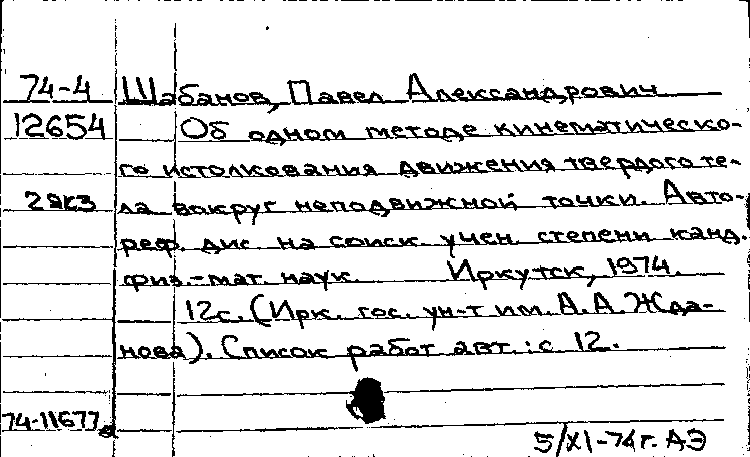 74-4 Шабанов, Павел Александрович
12654 Об одном методе кинематическо-
го истолкования движения твердого те-
2экз ла вокруг неподвижной точки. Авто-
реф. дис. на соиск. учен. степени канд.
физ.-мат. наук. Иркутск, 1974.
12с. (Ирк. гос. ун-т им. А.А. Жда-
нова). Список работ авт.: с 12.
74-11677
5/XI-74г. АЭ